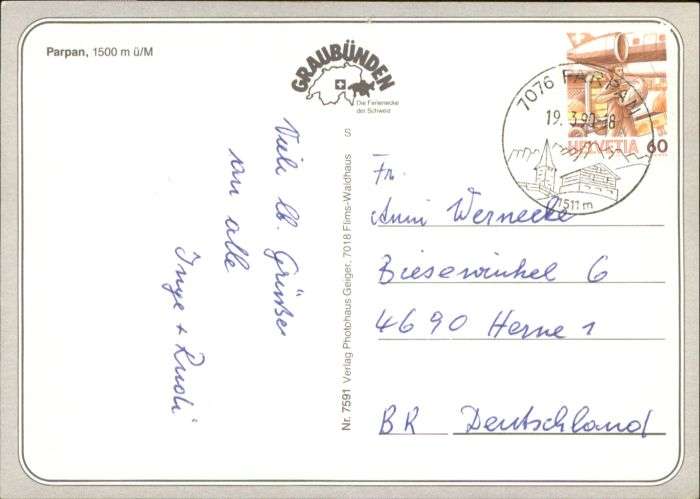 Parpan, 1500 m ü/M
GRAUBÜNDEN
Die Ferienecke
der Schweiz
S
7076 PARPAN
19. 3.90-18
1511 m
HELVETIA 60
Viele lb. Grüße
an alle
Inge + Rudi
Nr. 7591 Verlag Photohaus Geiger, 7018 Flims-Waldhaus
Fr.
Anni Wernecke
Biesewinkel 6
4690 Herne 1
BR Deutschland